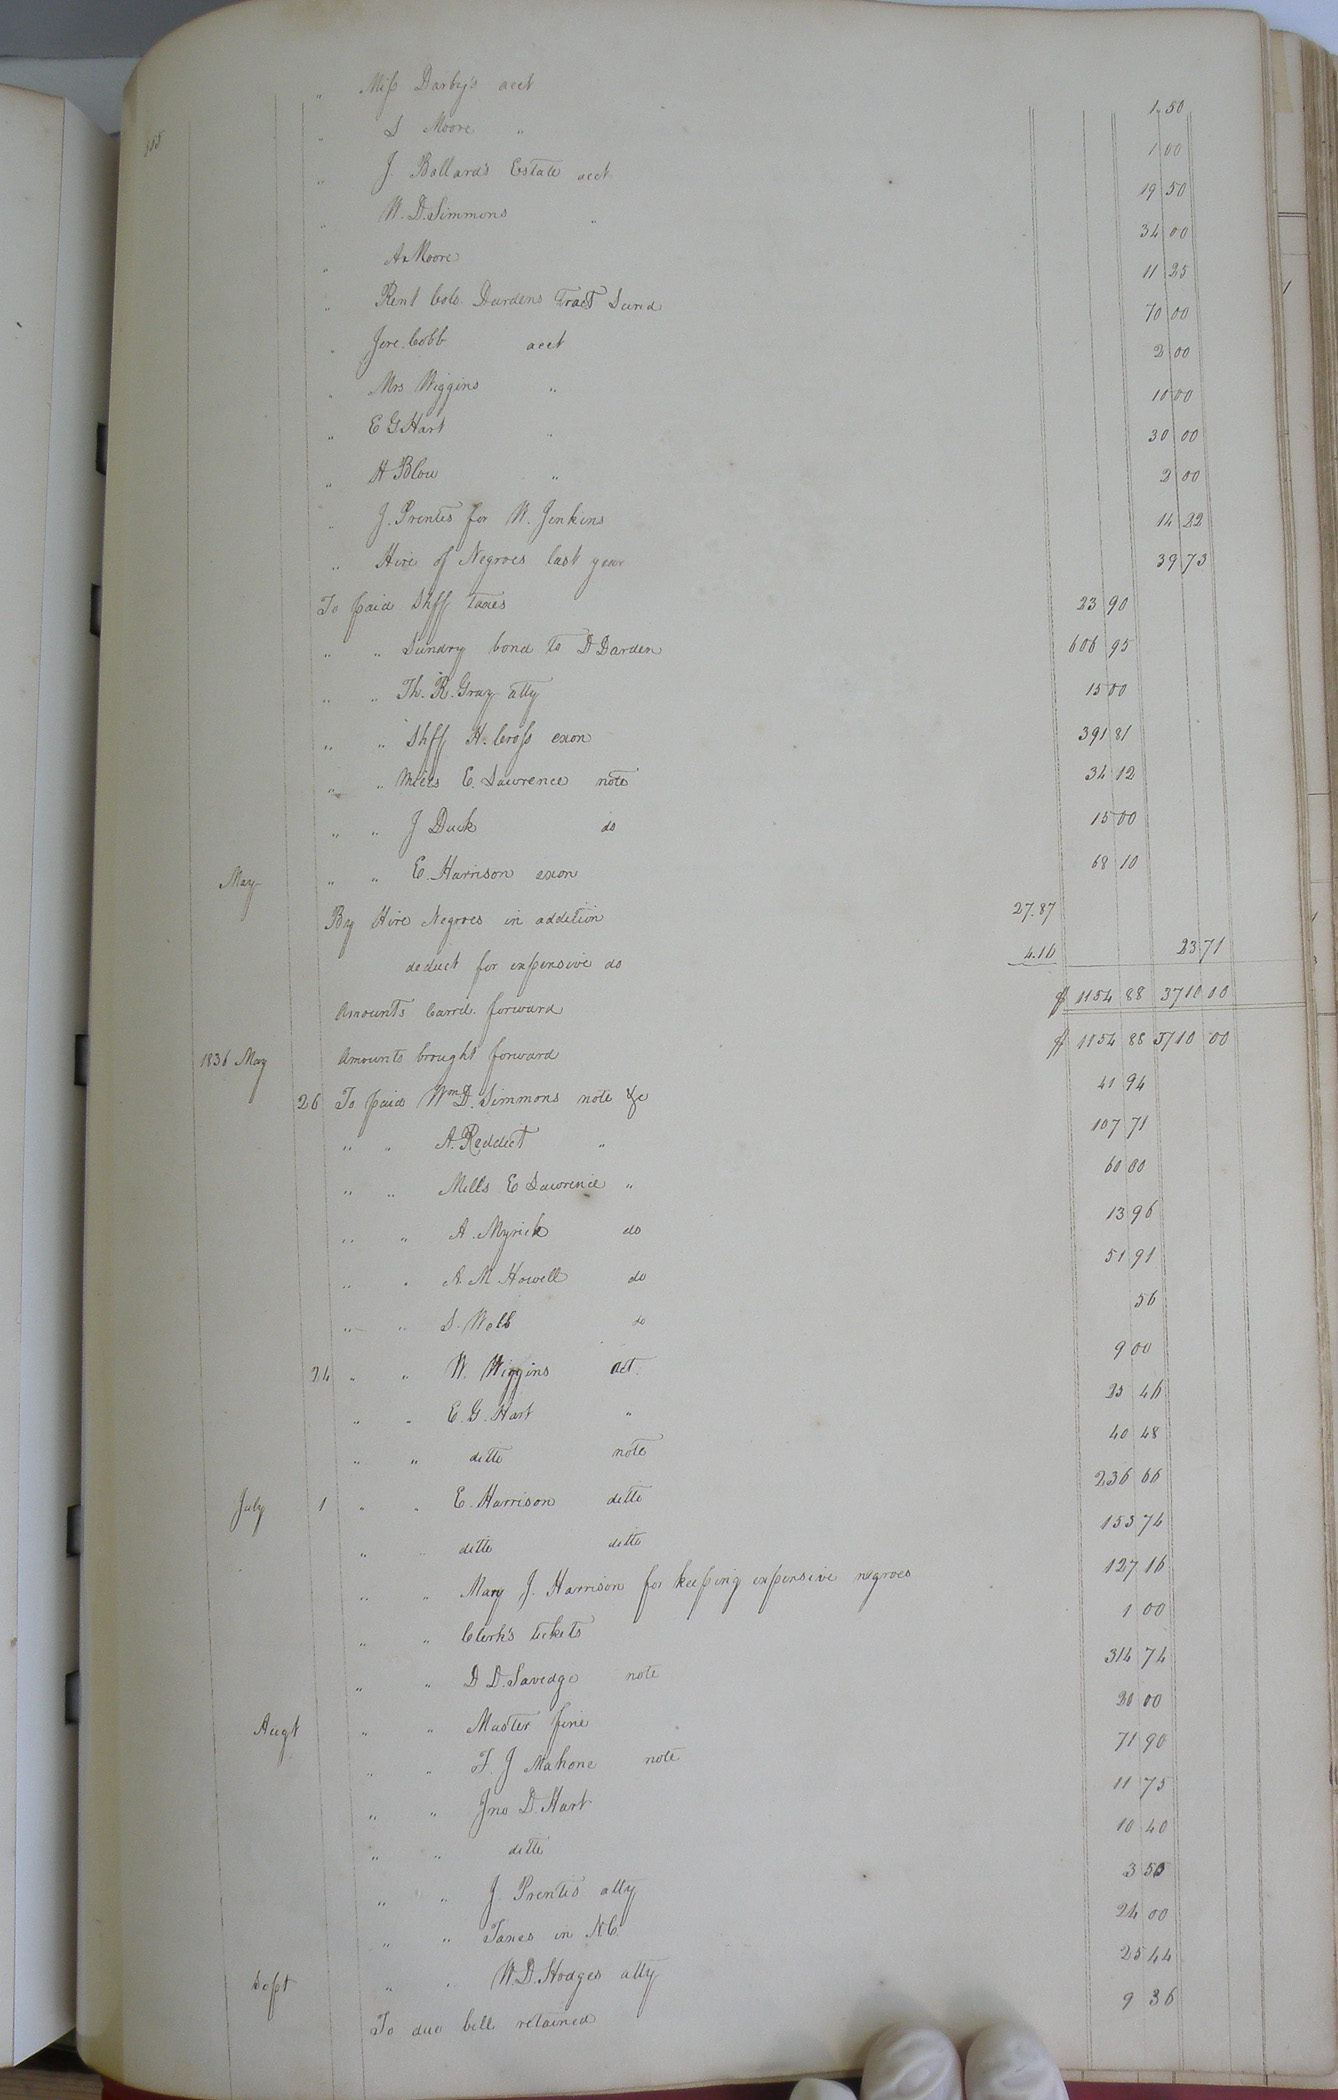 " Miss Darby's acct 1.50
" S Moore " 1 00
" J. Ballard's Estate acct 19 50
" W. D. Simmons " 34 00
" A Moore 11 25
" Rent Cols. Dardens Tract Land 70 00
" Jere. Cobb acct 2 00
" Mrs Wiggins " 10 00
" E G Hart " 30 00
" H Blow " 2 00
" J. Prentis for W. Jenkins 14 22
" Hire of Negroes last year 39 73
To paid Shff taxes 23 90
" " Sundry bond to D Darden 606 95
" " Th. R. Gray atty 15 00
" " Shff H. Cross exon 391 81
" " Mills E. Lawrence note 34 12
" " J Duck do 15 00
May " " E. Harrison exon 68 10
By Hire Negroes in addition 27.87
deduct for expensive do 4.16 23 71
Amounts Carrd. forward $ 1154 88 3710 00
1836 May Amounts brought forward $ 1154 88 3710 00
26 To paid Wm D. Simmons note &c 41 94
" " A. Reddict " 107 71
" " Mills E Lawrence " 60 00
" " A. Myrick do 13 96
" " A. M Howell do 51 91
" " S. Webb do 56
24 " " W. Wiggins act. 9 00
" " E. G. Hart " 25 46
" " ditto note 40 48
July 1 " " E. Harrison ditto 236 66
" " ditto ditto 153 74
" " Mary J. Harrison for keeping expensive negroes 127 16
" " Clerk's tickets 1 00
" " D D. Savedge note 314 74
Augt " " Muster fine 20 00
" " T. J Mahone note 71 90
" " Jno D. Hart 11 75
" " ditto 10 40
" " J. Prentis atty 3 50
" " Taxes in N.C. 24 00
Sept " " W. D. Hodges atty 25 44
To due bill retained 9 36